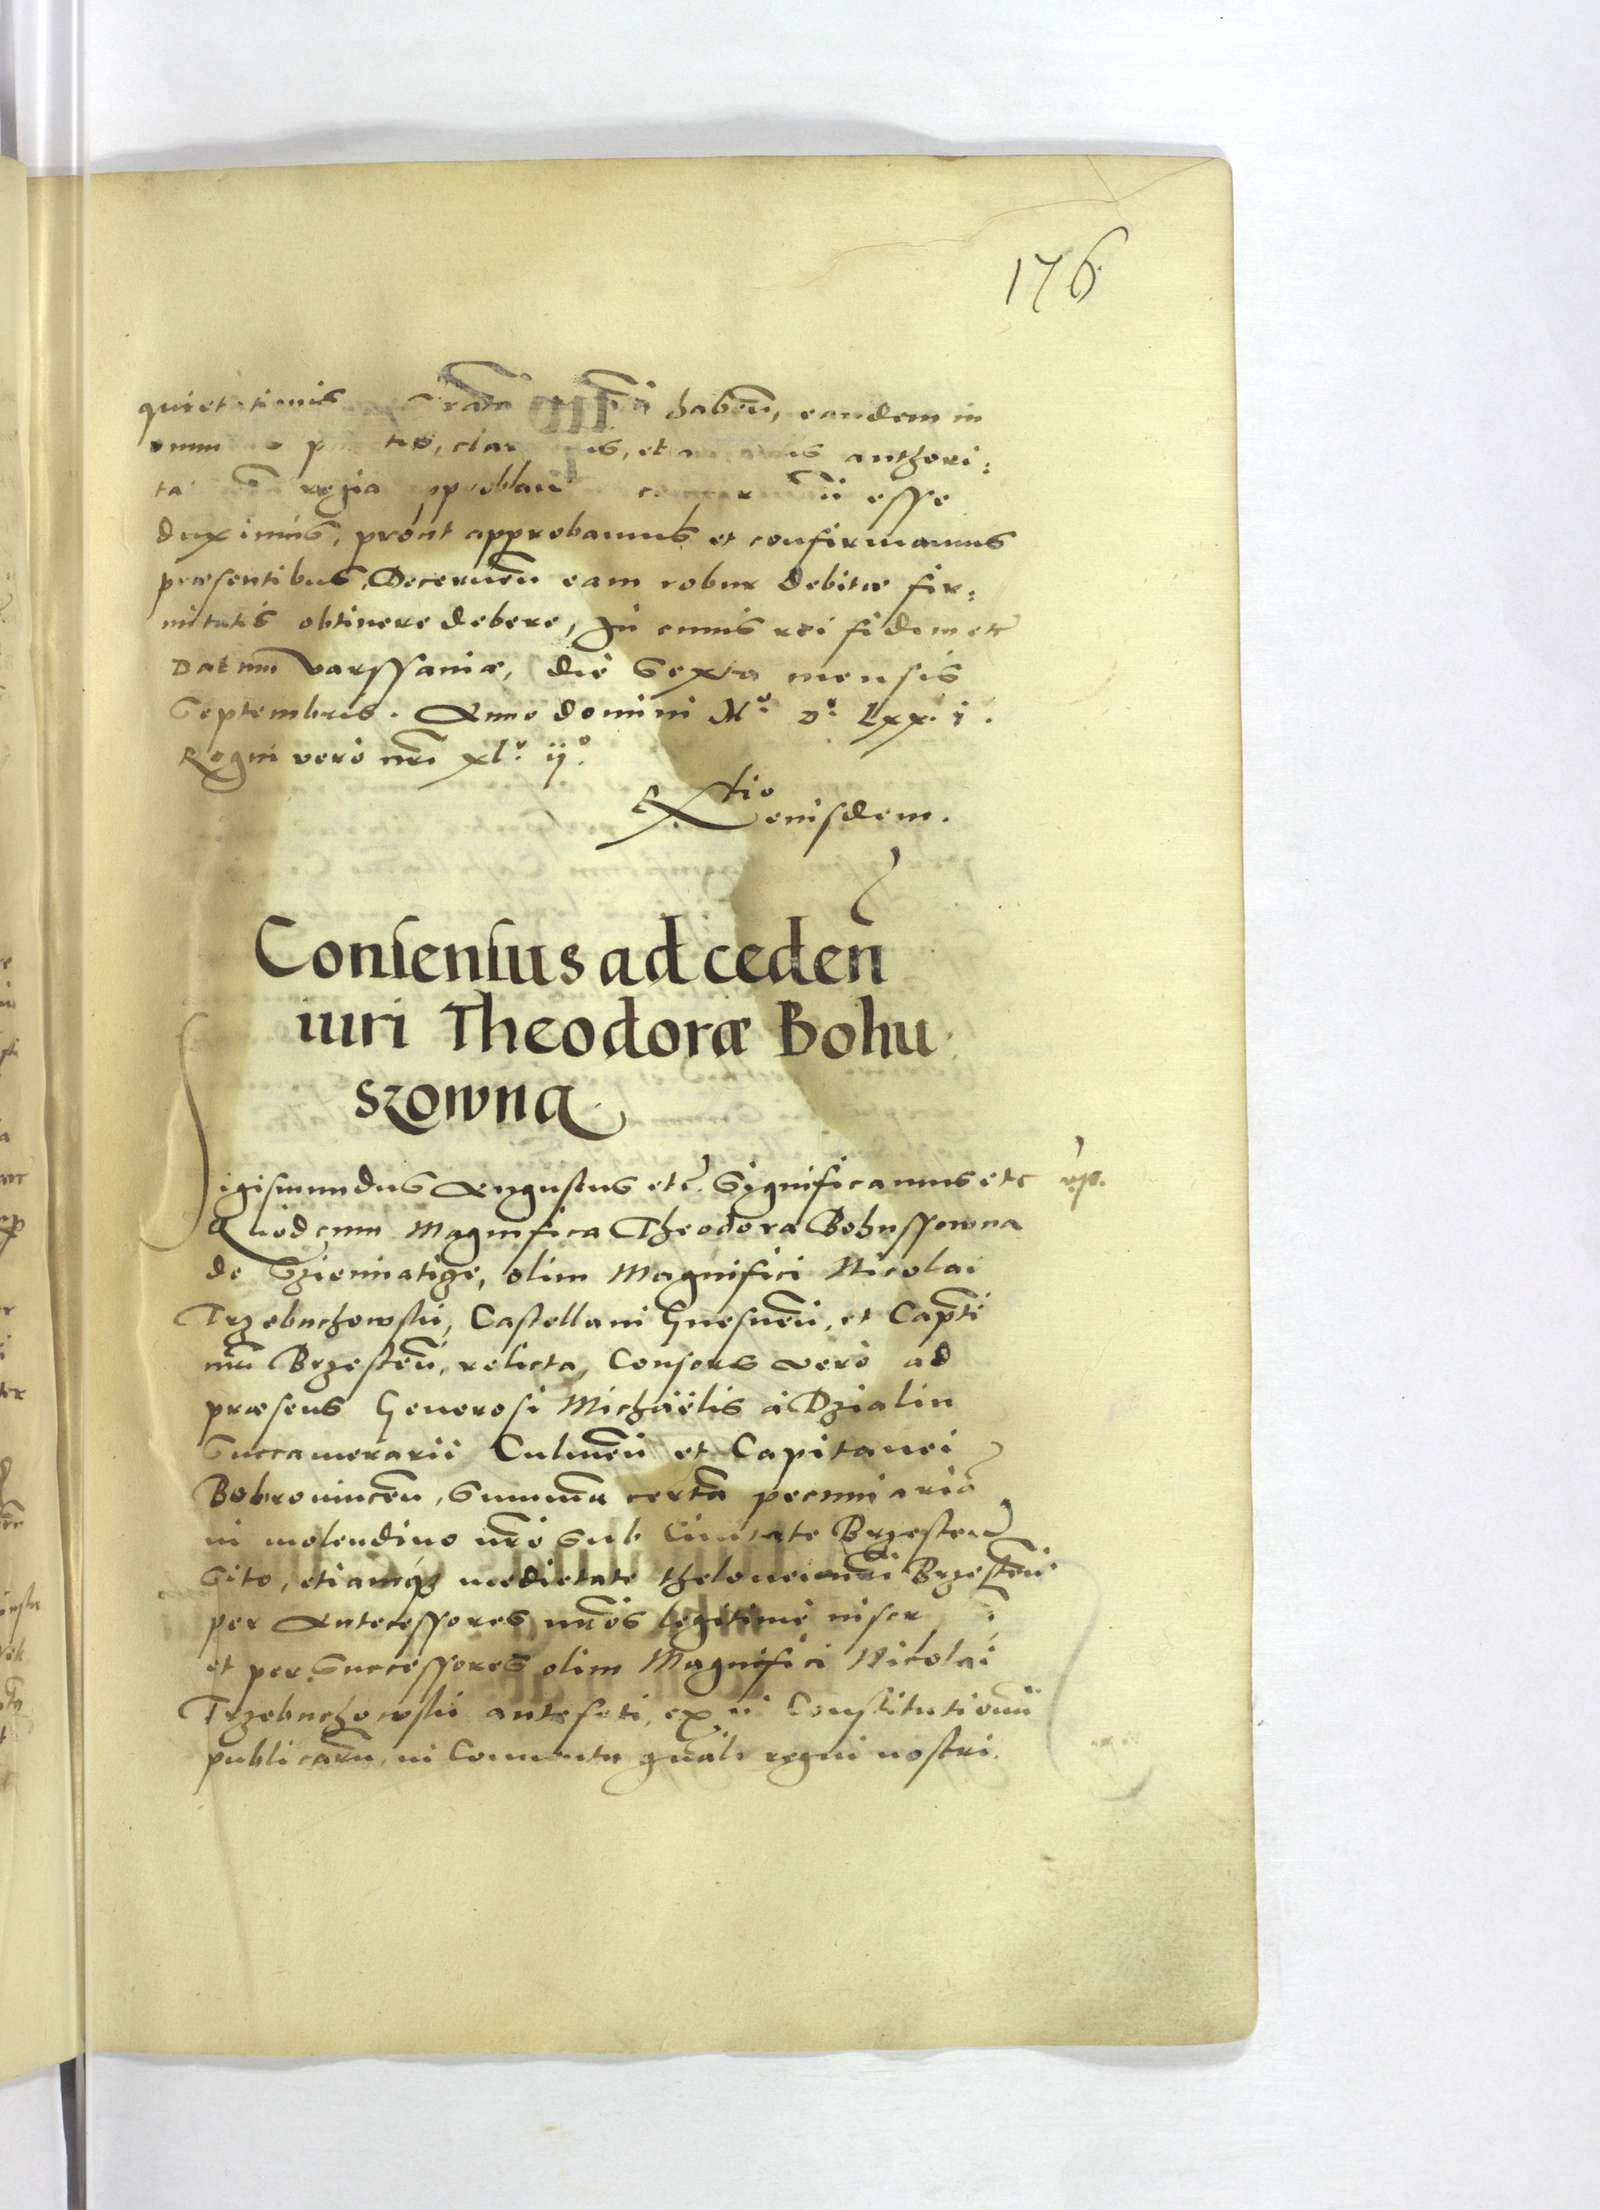 176
quietationis habeñ, eandem in
et authori:
regia esse
duximus, prout approbamus et confirmamus
præsentibus, Decerneñ eam robur debitæ fir:
mitatis obtinere debere, In cuius rei fidem etc̃
Datum Varssaniæ, die Sexta mensis
Septembris. Anno domini Mº Dº Lxx. i.
Regni vero nr̃i xlº. ijº.
Rtio eiusdem.
Consensus ad ceden̄
iuri Theodoræ Bohu
szowna
Sigismundus Augustus etc̃. Significamus etc
Quod cum Magnifica Theodora Bohussowna
de olim Magnifici Nicolai
Trzebuchowski, Castellani Gnesneñ, et Capti
nr̃i Brzesteñ, relicta, Consors vero ad
præsens Generosi Michaëlis à Dzialin
Succamerarii Culmeñ et Capitanei
Bobrouniceñ, Summã certã pecuniariã
in molendino nr̃o sub Ciuitate Brzesteñ
sito, etiamq3 medietate thelonei nr̃i Brzesteñ
per Antecessores nr̃os legitime inscr
et per Successores olim Magnifici Nicolai
Trzebuchowski antefati, ex ui Constitutionũ
publicarũ, in Conuentu gñali regni nostri